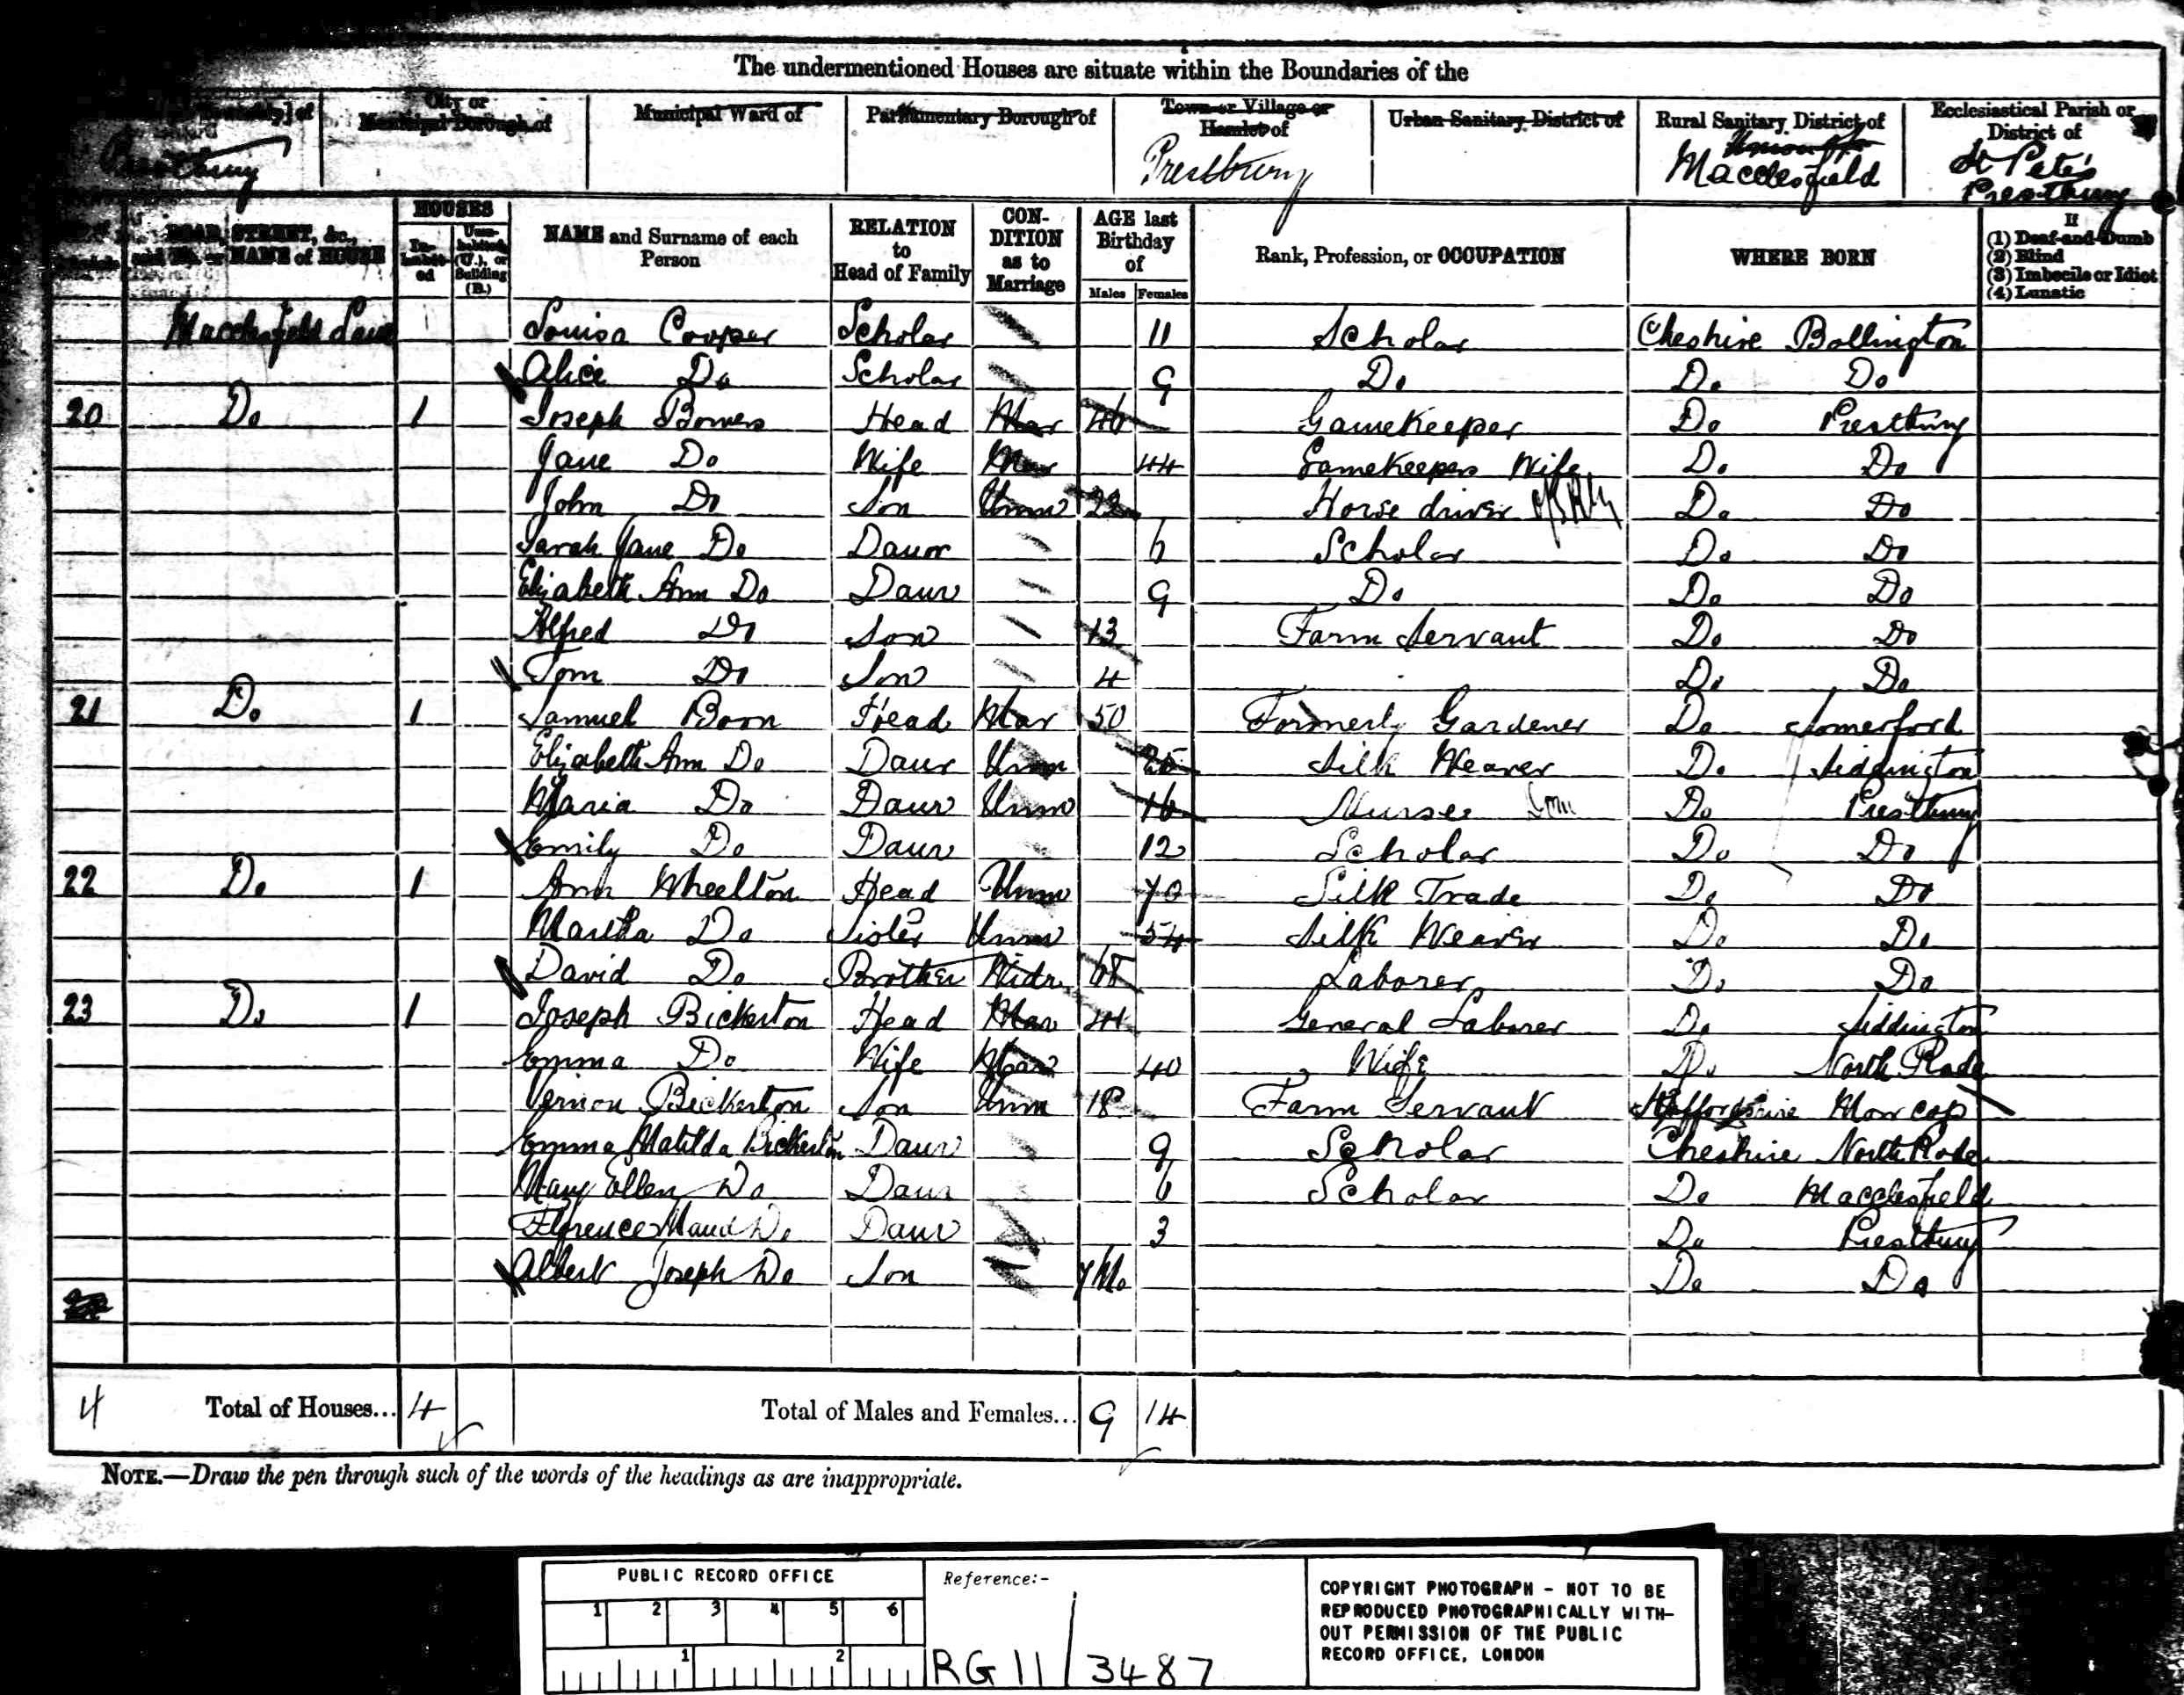 The undermentioned Houses are situate within the Boundaries of the
City or Municipal Borough of
Municipal Ward of
Parliamentary Borough of
Town or Village or Hamlet of
Urban Sanitary District of
Rural Sanitary District of
Ecclesiastical Parish or District of
Prestbury
Prestbury
Macclesfield
St Peter's Prestbury
ROAD, STREET, &c., and No. or NAME of HOUSE
HOUSES
In-habit-ed
Unin-habited (U.), or Building (B.)
NAME and Surname of each Person
RELATION to Head of Family
CON-DITION as to Marriage
AGE last Birthday of
Males Females
Rank, Profession, or OCCUPATION
WHERE BORN
If
(1) Deaf-and-Dumb
(2) Blind
(3) Imbecile or Idiot
(4) Lunatic
Macclesfield Lane Louisa Cooper Scholar 11 Scholar Cheshire Bollington
Alice Do Scholar 9 Do Do Do
20 Do 1 Joseph Bowers Head Mar 46 Gamekeeper Do Prestbury
Jane Do Wife Mar 44 Gamekeepers Wife Do Do
John Do Son Unm 22 Horse driver Do Do
Sarah Jane Do Daur 6 Scholar Do Do
Elizabeth Ann Do Daur 9 Do Do Do
Alfred Do Son 13 Farm Servant Do Do
Tom Do Son 4 Do Do
21 Do 1 Samuel Boon Head Mar 50 Formerly Gardener Do Somerford
Elizabeth Ann Do Daur Unm 25 Silk Weaver Do Siddington
Maria Do Daur Unm 16 Nurse Dom Do Prestbury
Emily Do Daur 12 Scholar Do Do
22 Do 1 Ann Wheelton Head Unm 70 Silk Trade Do Do
Martha Do Sister Unm 54 Silk Weaver Do Do
David Do Brother Widr 68 Laborer Do Do
23 Do 1 Joseph Bickerton Head Mar 44 General Laborer Do Siddington
Emma Do Wife Mar 40 Wife Do North Rode
Vernon Bickerton Son Unm 18 Farm Servant Staffordshire Mow cop
Emma Matilda Bickerton Daur 9 Scholar Cheshire North Rode
Mary Ellen Do Daur 6 Scholar Do Macclesfield
Florence Maud Do Daur 3 Do Prestbury
Albert Joseph Do Son 7 Mo Do Do
4 Total of Houses... 4 Total of Males and Females... 9 14
NOTE.—Draw the pen through such of the words of the headings as are inappropriate.
PUBLIC RECORD OFFICE
1 2 3 4 5 6
1 2
Reference:-
RG 11 / 3487
COPYRIGHT PHOTOGRAPH - NOT TO BE
REPRODUCED PHOTOGRAPHICALLY WITH-
OUT PERMISSION OF THE PUBLIC
RECORD OFFICE, LONDON